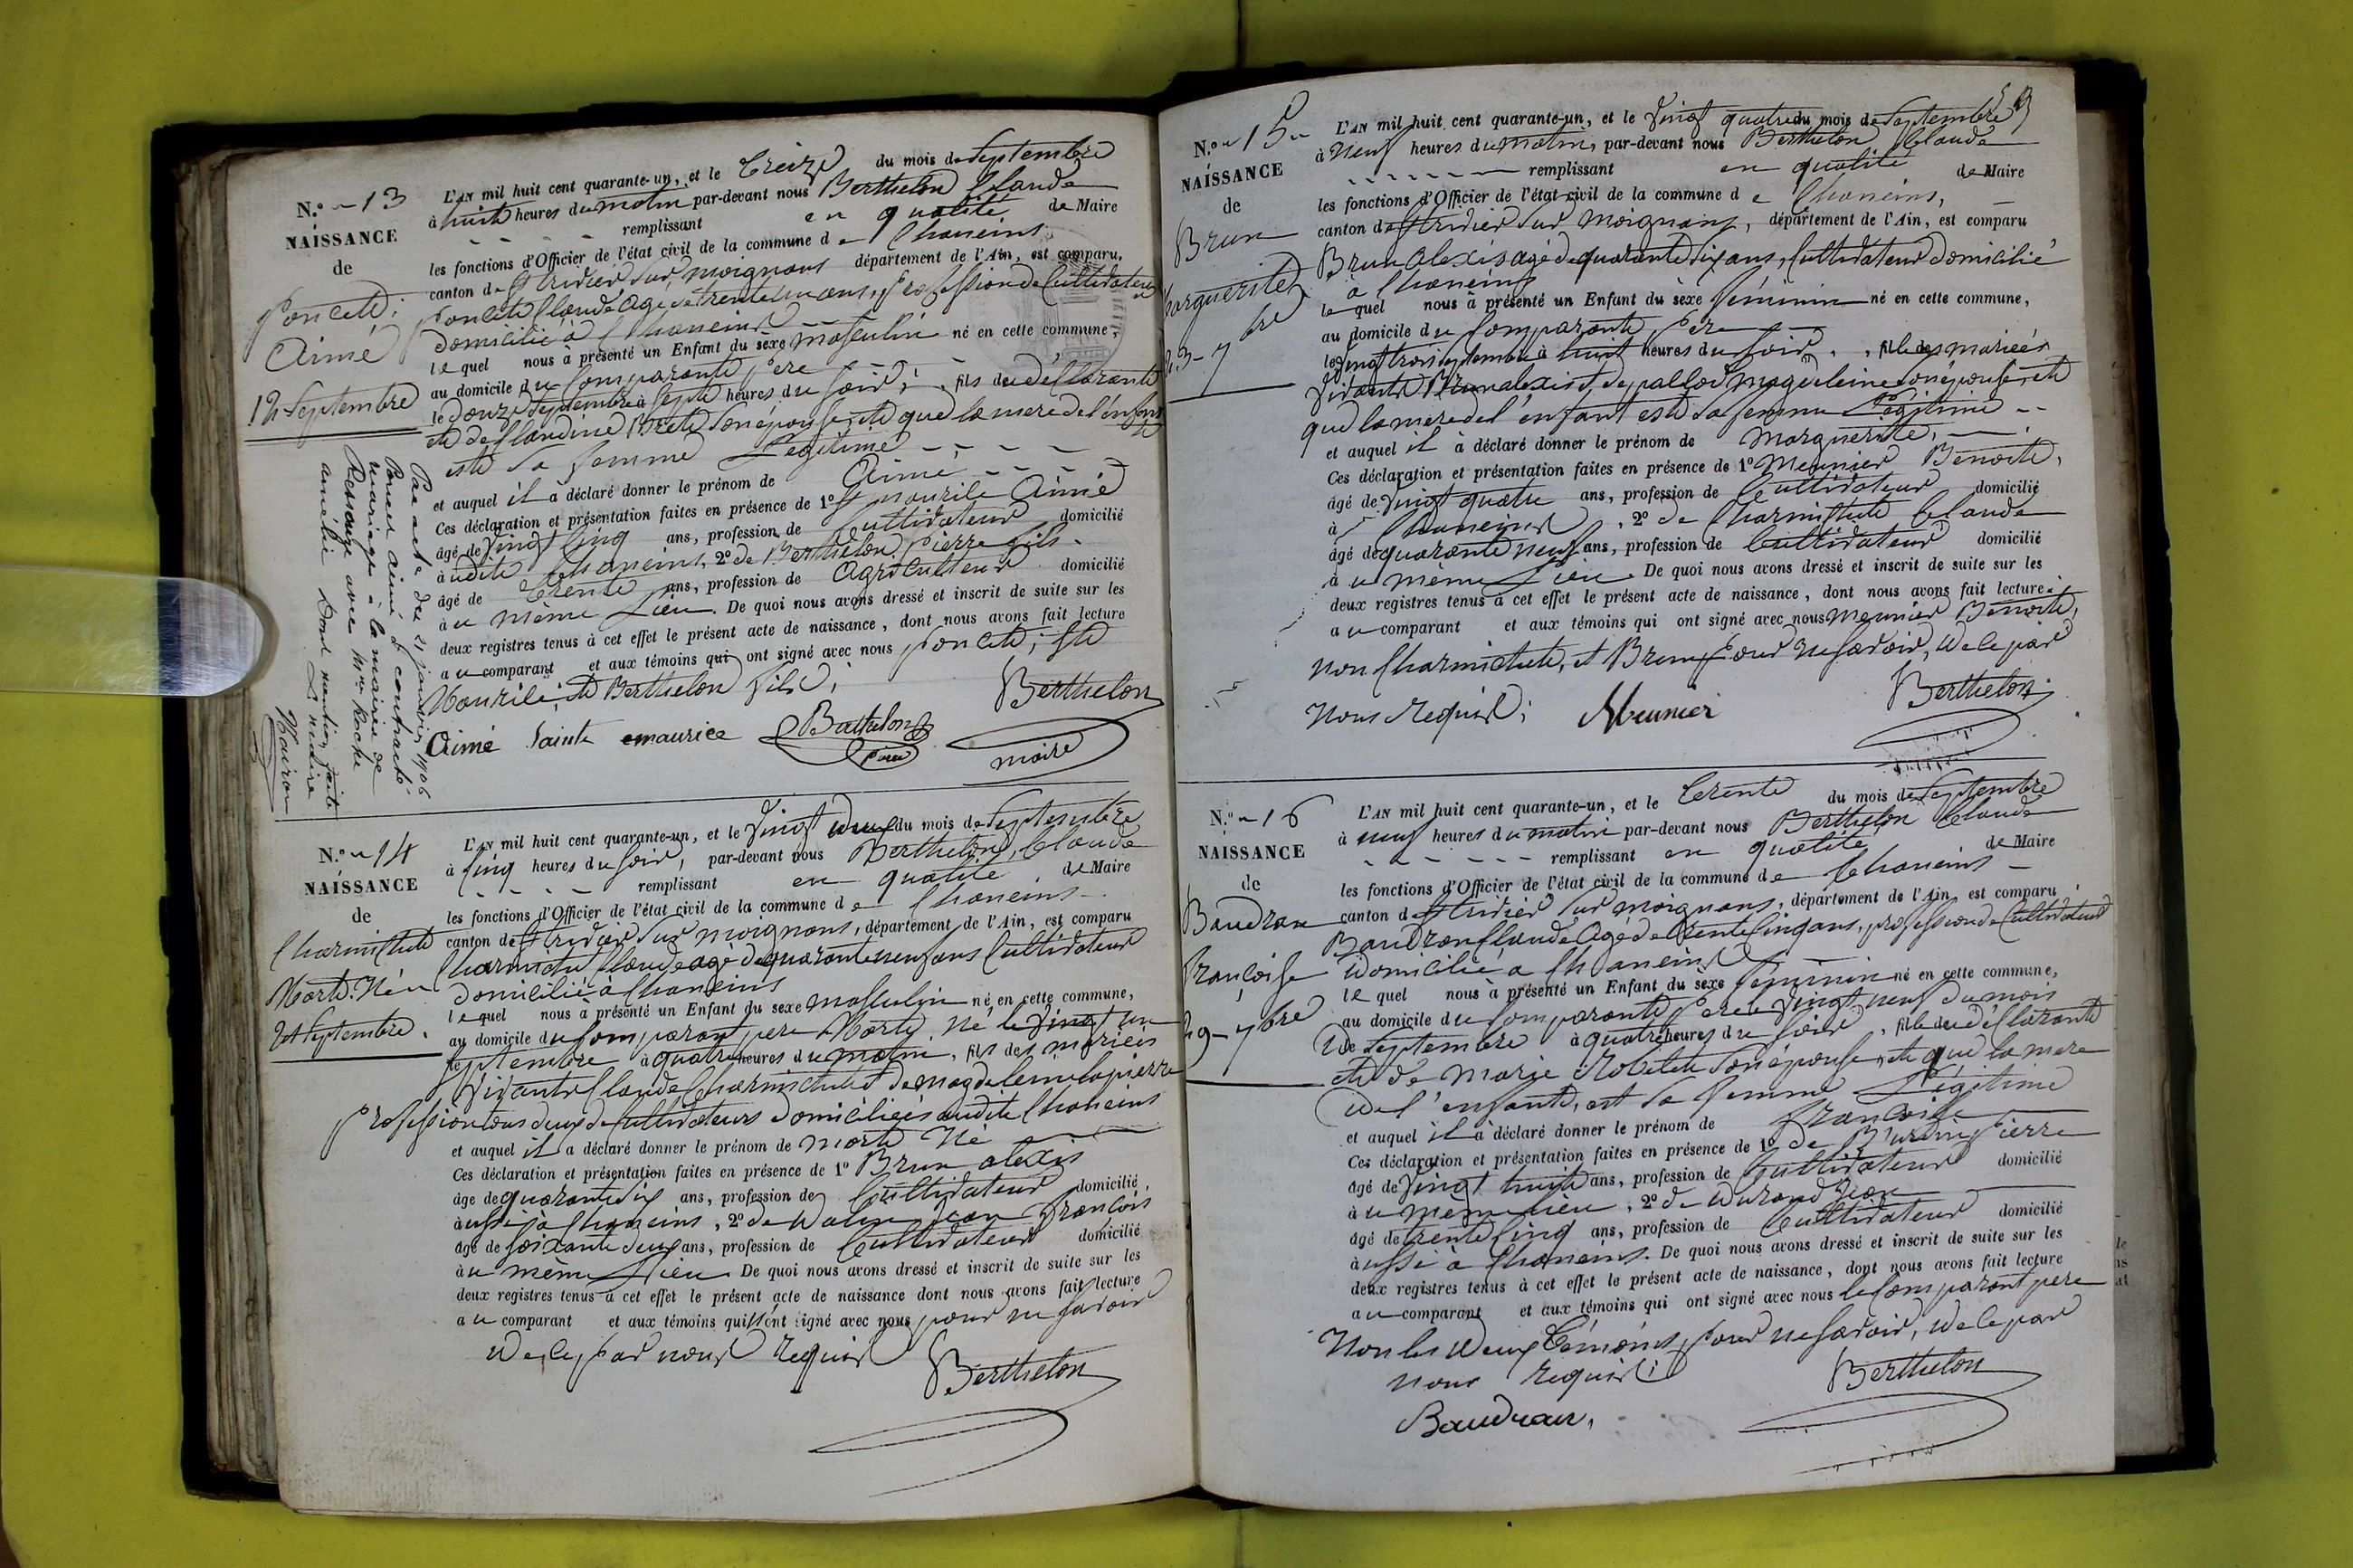 N.º 13
NAISSANCE
de
Poncet
Aimé
12 Septembre
L'AN mil huit cent quarante-un, et le Treize du mois de Septembre
à huit heures du matin par-devant nous Berthelon Claude
remplissant en qualité de Maire
les fonctions d'Officier de l'état civil de la commune de Chaneins
canton de St Trivier sur moignans département de l'Ain, est comparu,
Poncet Claude agé de trente ans, profession de Cultivateur
domicilié à Chaneins
lequel nous à présenté un Enfant du sexe masculin né en cette commune,
au domicile du Comparante père
le Douze Septembre à Sept heures du soir, fils du déclarante
et de Claudine Son épouse, et que la mere de l'enfant
este Sa femme Légitime
et auquel il à déclaré donner le prénom de Aimé
Ces déclaration et présentation faites en présence de 1º St mourile Aimé
âgé de Vingt Cinq ans, profession de Cultivateur domicilié
à udite Chaneins, 2º de Berthelon Pierre fils
âgé de Trente ans, profession de Agriculteur domicilié
à u même Lieu. De quoi nous avons dressé et inscrit de suite sur les
deux registres tenus à cet effet le présent acte de naissance, dont nous avons fait lecture
au comparant et aux témoins qui ont signé avec nous Poncete, Ste
Mourile, et Berthelon fils.
Aimé Sainte maurice Berthelon Berthelon
maire
Par acte du 21 janvier 1906
Poncet Aimé a contracté
mariage à la mairie de
avec Mme Roche
amélie Dont mention faite
N.º 14
NAISSANCE
de
Charmithete
Morte Née
21 Septembre
L'AN mil huit cent quarante-un, et le Vingt du mois de Septembre
à Cinq heures du soir, par-devant nous Berthelon, Claude
remplissant en qualité de Maire
les fonctions d'Officier de l'état civil de la commune de Chaneins
canton de St Trivier sur moignans, département de l'Ain, est comparu
Claude agé de quarante neuf ans Cultivateur
domicilié à Chaneins
lequel nous a présenté un Enfant du sexe masculin né en cette commune,
au domicile du Comparant pere Morte Né le Vingt un
Septembre à quatre heures du matin, fils des mariées
Vivante Claude et de magdeleine lapierre
profession tous deux de Cultivateurs domiciliées audite Chaneins
et auquel il a déclaré donner le prénom de morte Né
Ces déclaration et présentation faites en présence de 1º Brun alexis
âge de quarante Six ans, profession de Cultivateur domicilié,
aussi à Chaneins, 2º de Jean François
âgé de Soixante deux ans, profession de Cultivateur domicilié
à u même Lieu De quoi nous avons dressé et inscrit de suite sur les
deux registres tenus à cet effet le présent acte de naissance dont nous avons fait lecture
au comparant et aux témoins qui signé avec nous pour ne Savoir
de ce par nous requis
Berthelon
N.º 15
NAISSANCE
de
Brun
Marguerite
23 7bre
L'AN mil huit cent quarante-un, et le Vingt quatre du mois de Septembre
à Neuf heures du matin, par-devant nous Berthelon Claude
remplissant en qualité de Maire
les fonctions d'Officier de l'état civil de la commune de Chaneins,
canton de St Trivier sur moignans, département de l'Ain, est comparu
Brun Alexis agé de quarante Six ans, Cultivateur domicilié
à Chaneins
lequel nous à présenté un Enfant du sexe féminin né en cette commune,
au domicile du Comparante père
le Vingt trois Septembre à huit heures du soir, fille des mariées
Vivante Brun alexis et magdeleine Son épouse, ete
que la mere del'enfant este Sa femme Légitime
et auquel il à déclaré donner le prénom de Marguerite,
Ces déclaration et présentation faites en présence de 1º Meunier Benoite,
âgé de Vingt quatre ans, profession de Cultivateur domicilié
à Chaneins, 2º de Charmithete Claude
âgé de quarante neuf ans, profession de Cultivateur domicilié
à u même Lieu. De quoi nous avons dressé et inscrit de suite sur les
deux registres tenus à cet effet le présent acte de naissance, dont nous avons fait lecture.
au comparant et aux témoins qui ont signé avec nous Meunier Benoite,
non Charmithete, et Brun pour ne Savoir, de ce par
Nous requis; Meunier Berthelon
N.º 16
NAISSANCE
de
Baudran
Françoise
29 7bre
L'AN mil huit cent quarante-un, et le Trente du mois de Septembre
à neuf heures du matin par-devant nous Berthelon Claude
remplissant en qualité de Maire
les fonctions d'Officier de l'état civil de la commune de Chaneins
canton de St Trivier sur moignans, département de l'Ain, est comparu
Baudran Claude Agé de trente Cinq ans, profession de Cultivateur
domicilié à Chaneins
lequel nous à présenté un Enfant du sexe féminin né en cette commune,
au domicile du Comparante Pere le Vingt neuf du mois
de Septembre à quatre heures du soir, fille du déclarante
ete de Marie Son épouse, ete que la mere
de l'enfante, est Sa femme Légitime
et auquel il à déclaré donner le prénom de françoise
Ces déclaration et présentation faites en présence de 1º de Burdin Pierre
âgé de Vingt huit ans, profession de Cultivateur domicilié
à u même lieu, 2º de Durand Jean
âgé de trente Cinq ans, profession de Cultivateur domicilié
aussi à Chaneins. De quoi nous avons dressé et inscrit de suite sur les
deux registres tenus à cet effet le présent acte de naissance, dont nous avons fait lecture
au comparant et aux témoins qui ont signé avec nous le Comparant pere
Non les deux Témoins pour ne Savoir, de ce par
nous requis;
Berthelon
Baudran